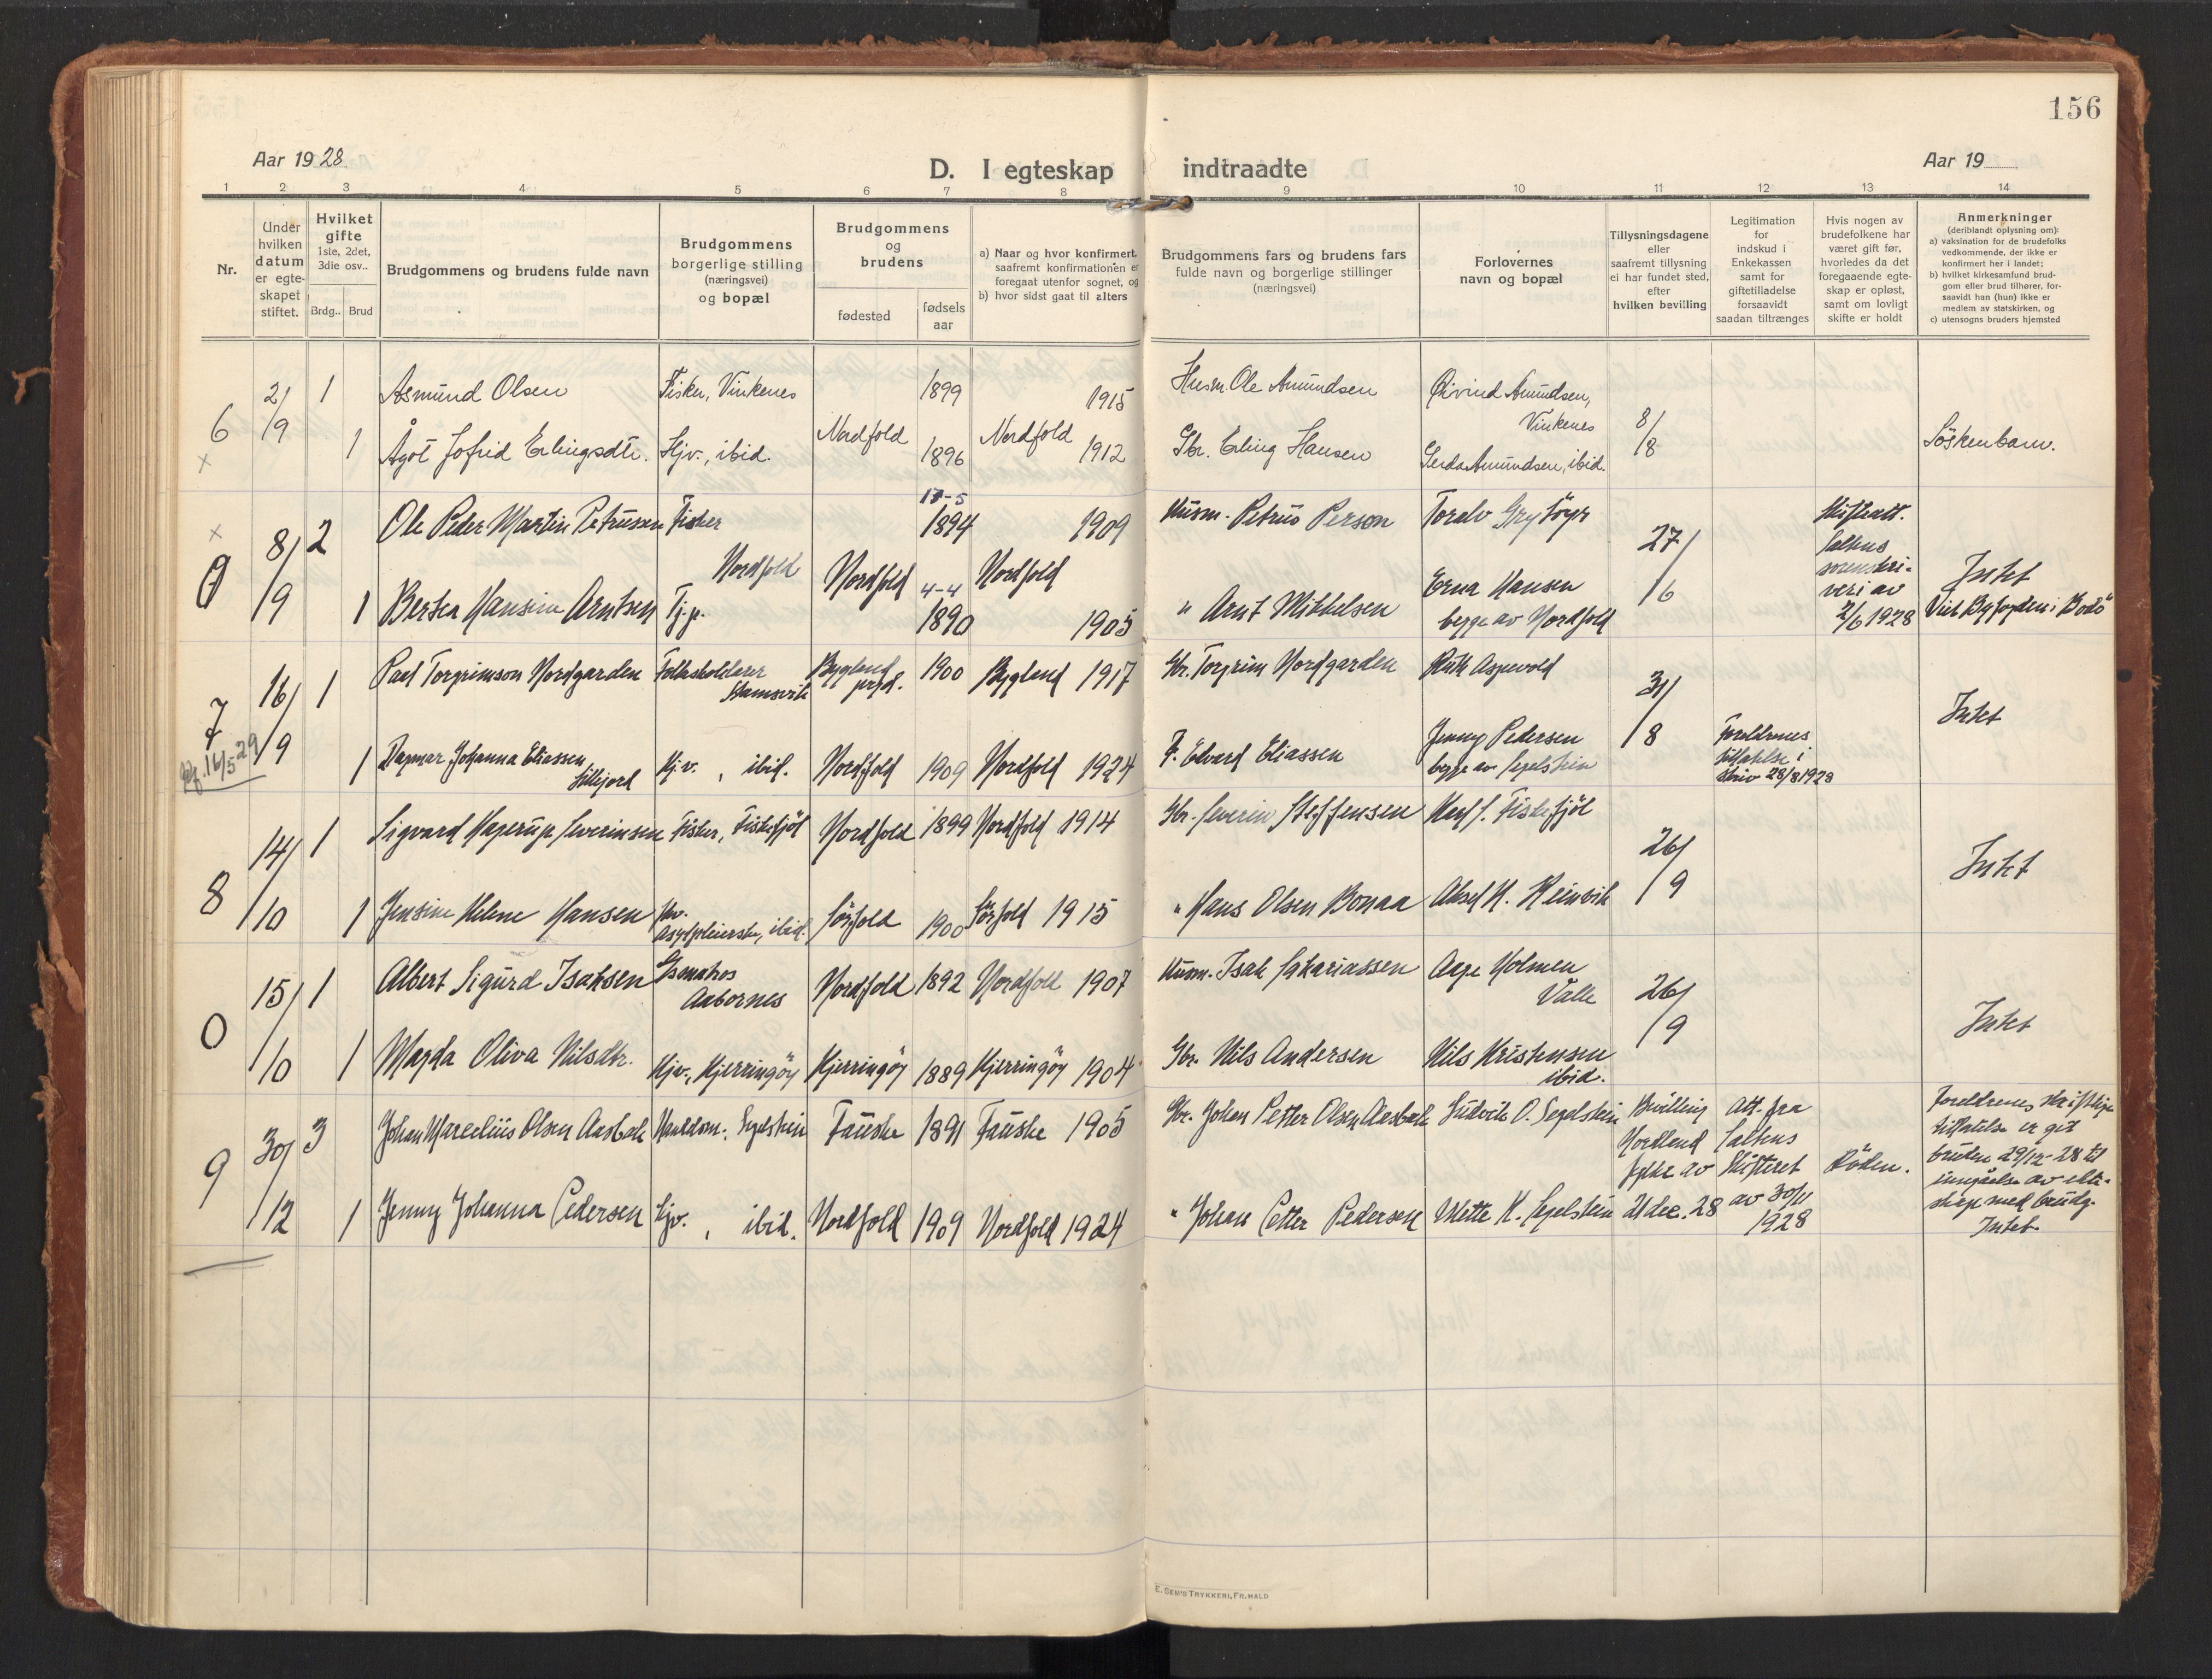 156
Aar 1928
D. I egteskap indtraadte
Aar 19
1 2 3 4 5 6 7 8 9 10 11 12 13 14
Nr.
Under hvilken datum er egte-skapet stiftet.
Hvilket gifte 1ste, 2det, 3die osv..
Brdg.. Brud
Brudgommens og brudens fulde navn
Brudgommens borgerlige stilling (næringsvei) og bopæl
Brudgommens og brudens
fødested
fødsels aar
a) Naar og hvor konfirmert, saafremt konfirmationen er foregaat utenfor sognet, og
b) hvor sidst gaat til alters
Brudgommens fars og brudens fars fulde navn og borgerlige stillinger (næringsvei)
Forlovernes navn og bopæl
Tillysningsdagene eller saafremt tillysning ei har fundet sted, efter hvilken bevilling
Legitimation for indskud i Enkekassen samt for giftetilladelse forsaavidt saadan tiltrænges
Hvis nogen av brudefolkene har været gift før, hvorledes da det foregaaende egte-skap er opløst, samt om lovligt skifte er holdt
Anmerkninger (deriblandt oplysning om):
a) vaksination for de brudefolks vedkommende, der ikke er konfirmert her i landet;
b) hvilket kirkesamfund brud-gom eller brud tilhører, for-saavidt han (hun) ikke er medlem av statskirken, og
c) utensogns bruders hjemsted
6 2/9 1 Asmund Olsen Fisker, Vinkenes 1899 1915 Husm. Ole Amundsen Øivind Amundsen, Vinkenes
x 1 Ågot Jofrid Erlingsdtr. Hjv., ibid. Nordfold 1896 Nordfold 1912 Gbr. Erling Hansen Gerda Amundsen, ibid. 8/8 Söskenbarn.
x 0 8/9 2 Ole Peder Martin Petrussen Fisker Nordfold 17-5 1894 1909 Husm. Petrus Person Toralv Grytöyr 27/6 Skifteatt. Saltens sorenskri-veri av 2/6 1928
1 Bertea Hansine Arntsen Tj.p. Nordfold 4-4 1890 Nordfold 1905 " Arnt Mikkelsen Erna Hansen begge av Nordfold Intet Viet Byfogden i Bodö
7 16/9 1 Paal Torgrimson Nordgarden Folkskolelærer Stamsvik Bygland prgd. 1900 Bygland 1917 Gbr. Torgrim Nordgarden Ruth Aspevold 31/8 Intet
Rf. 16/5 29 1 Dagmar Johanna Eliassen Lillefjord Hjv., ibid. Nordfold 1909 Nordfold 1924 F. Edvard Eliassen Jenny Pedersen begge av Segelstein Foreldrenes tillatelse i skriv 28/8 1928
8 14/10 1 Sigvard Hagerup Severinsen Fisker, Fiskefjöl Nordfold 1899 Nordfold 1914 Gbr. Severin Steffensen Karl S. Fiskefjöl 26/9 Intet
1 Jensine Helene Hansen Hv. Asylpleierske, ibid. Sörfold 1900 Sörfold 1915 " Hans Olsen Bonaa Aksel H. Reinvik
0 15/10 1 Albert Sigurd Isaksen Gsmatros Aabornes Nordfold 1892 Nordfold 1907 Husm. Isak Sakariassen Aage Holmen Valle 26/9 Intet
1 Magda Oliva Nilsdtr. Hjv., Kjerringöy Kjerringöy 1889 Kjerringöy 1904 Gbr. Nils Andersen Nils Kristensen ibid.
9 30/12 3 Johan Marcelius Olsen Aasbak Handelsm., Segelstein Fauske 1891 Fauske 1905 Gbr. Johan Petter Olsen Aasbak Ludvik O. Segelstein Bevilling Nordland fylke av 21 dec. 28 Att. fra Saltens Skifteret av 30/11 1928 Döden. Foreldrenes skriftlige tillatelse er git bruden 29/12-28 til inngåelse av ekte-skap med brudg. Intet.
1 Jenny Johanna Pedersen Hjv., ibid. Nordfold 1909 Nordfold 1924 " Johan Petter Pedersen Mette K. Segelstein
E. SEM'S TRYKKERI, FR.HALD